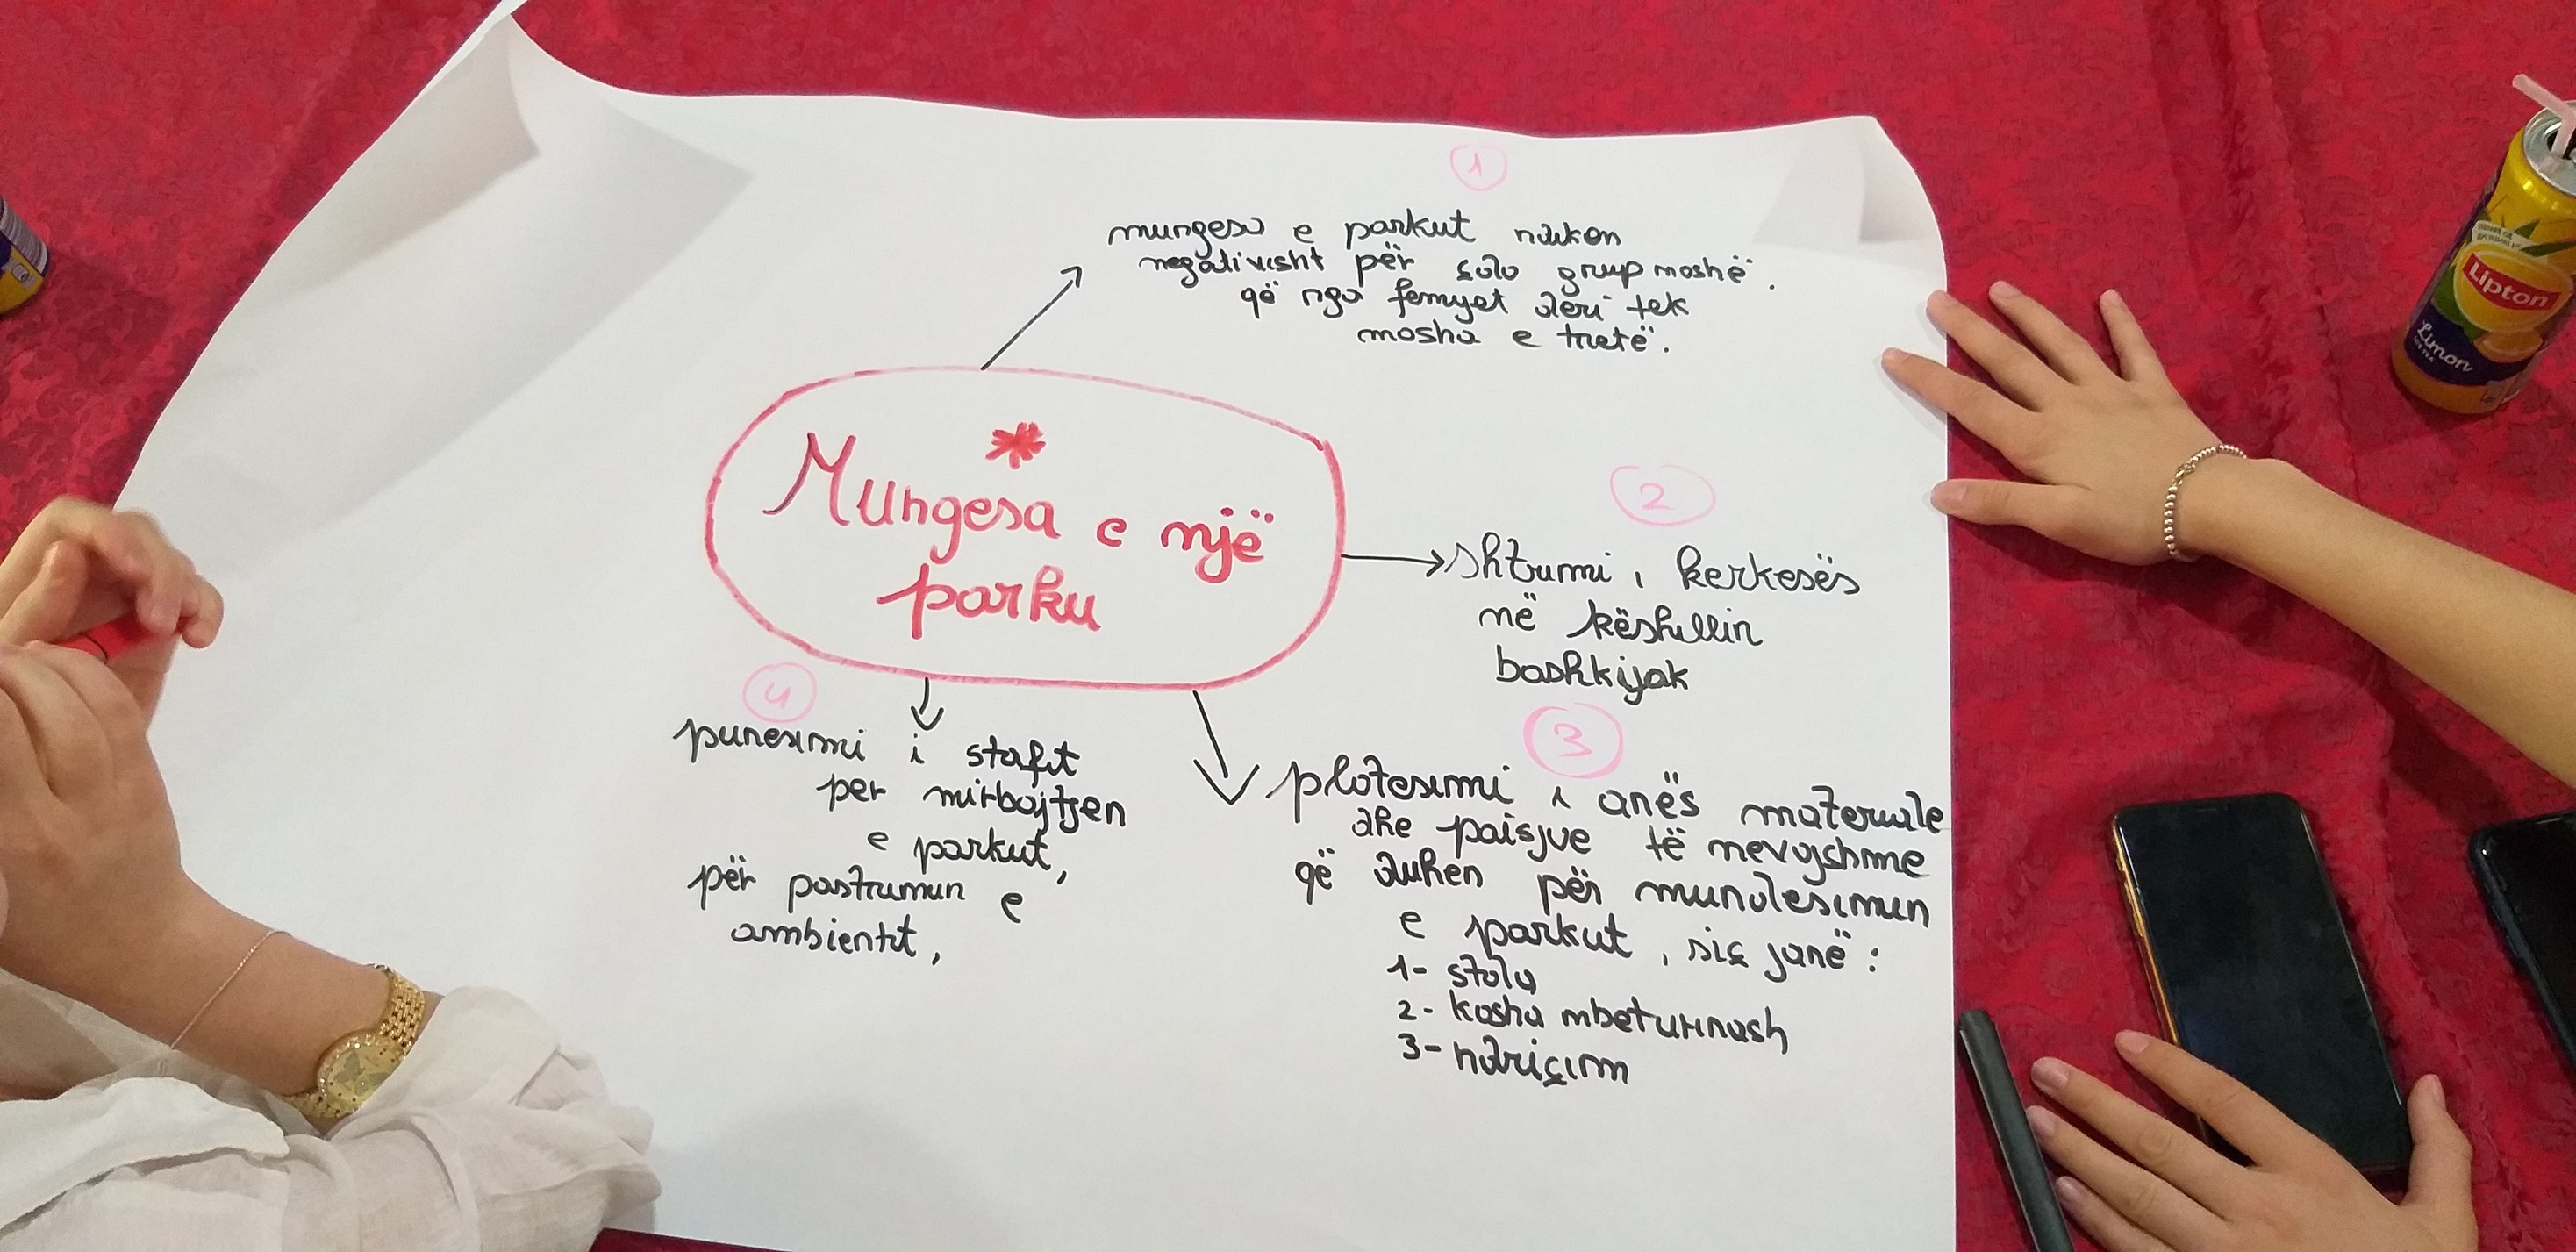 1
mungesa e parkut ndikon
negativisht për çdo grupmoshë.
që nga femyet deri tek
mosha e tretë.
*
Mungesa e një
parku
2
shtrimi i kerkesës
në këshillin
bashkijak
3
plotesimi i anës materiale
dhe paisjve të nevojshme
që duhen për mundesimin
e parkut, siç janë:
1- stola
2- kosha mbeturinash
3- ndriçim
4
punesimi i stafit
per mirbajtjen
e parkut,
për pastrimin e
ambientit,
Lipton
Limon